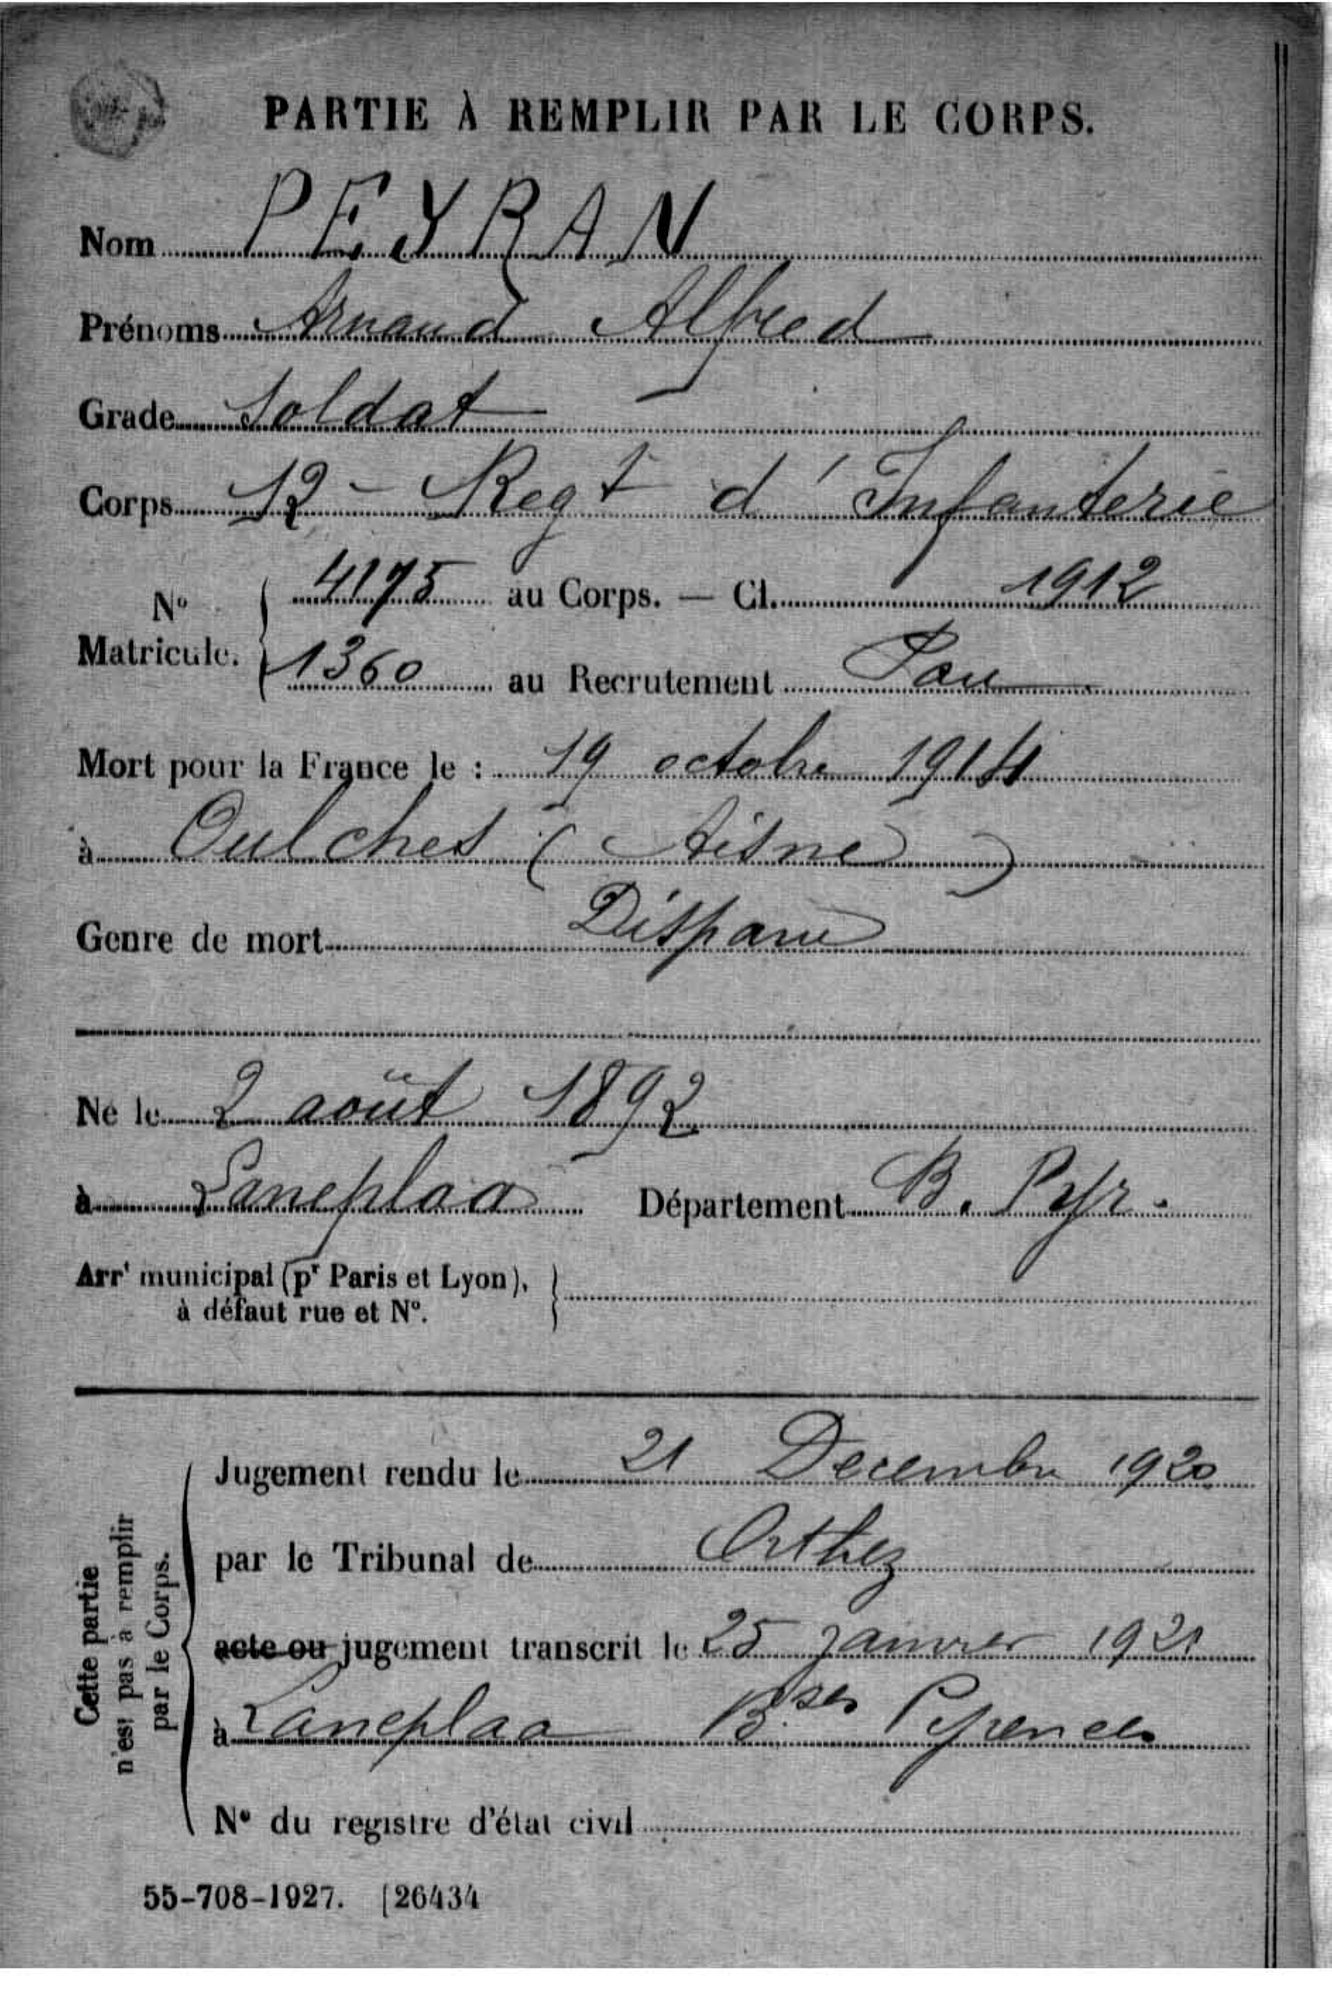 PARTIE À REMPLIR PAR LE CORPS.
Nom PEYRAN
Prénoms Arnaud Alfred
Grade Soldat
Corps 12 - Regt d'Infanterie
No Matricule. 4175 au Corps. — Cl. 1912
1360 au Recrutement Pau
Mort pour la France le : 19 octobre 1914
à Oulches (Aisne)
Genre de mort Disparu
Né le 2 août 1892
à Laneplaa Département B. Pyr.
Arrt municipal (pr Paris et Lyon),
à défaut rue et No.
Cette partie
n'est pas à remplir
par le Corps.
Jugement rendu le 21 Decembre 1920
par le Tribunal de Orthez
acte ou jugement transcrit le 25 janvier 1921
à Laneplaa Bses Pyrenees
No du registre d'état civil
55-708-1927. [26434